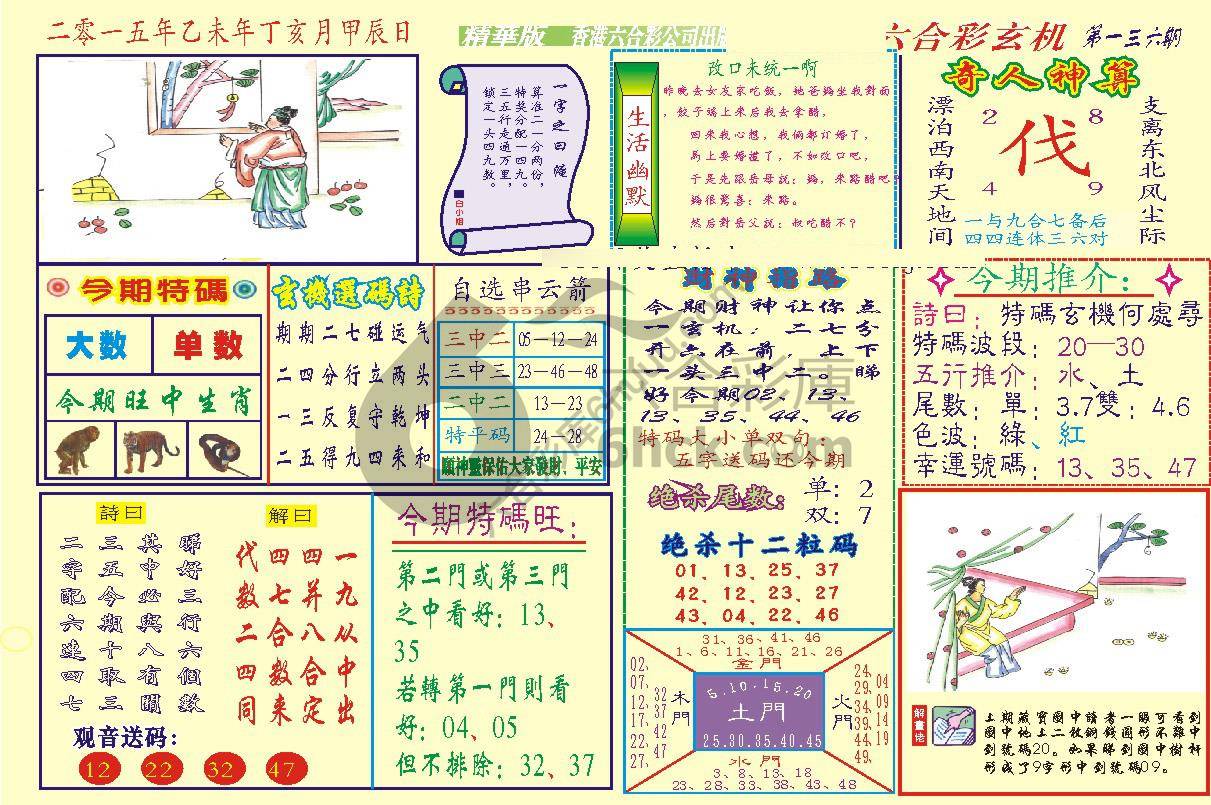 二零一五年乙未年丁亥月甲辰日
精華版 香港六合彩公司出版
六合彩玄机 第一三六期
一字之曰 隨
算准二一分两份，
特奖分配一四九。
三五行走通万里，
锁定一头四九数。
白小姐
生活幽默
改口未统一啊
昨晚去女友家吃飯，她爸媽坐我對面
，餃子端上来后我去拿醋，
回来我心想，我俩都订婚了，
馬上要婚禮了，不如改口吧，
于是先跟岳母説：媽，来路醋吧
媽很驚喜：来路。
然后對岳父説：叔吃醋不？
奇人神算
漂泊西南天地间
2 8
伐
4 9
支离东北风尘际
一与九合七备后
四四连体三六对
今期特碼
大数 单数
今期旺中生肖
玄機選碼詩
期期二七碰运气
二四分行立两头
一三反复守乾坤
二五得九四来和
自选串云箭
三中二 05—12—24
三中三 23—46—48
二中二 13—23
特平码 24—28
願神靈保佑大家發財、平安
財神
今期财神让你点
一玄机，二七分
开六在前，上下
一头三中二。睇
好今期02、13、
13、35、44、46
特码大小单双句：
五字送码还今期
绝杀尾数： 单：2
双：7
绝杀十二粒码
01、13、25、37
42、12、23、27
43、04、22、46
今期推介：
詩曰：特碼玄機何處尋
特碼波段：20—30
五行推介：水、土
尾數：單：3.7雙：4.6
色波：綠、紅
幸運號碼：13、35、47
詩曰
睇好三行六個數
其中必與八有關
三五今期十取三
二字配六連四七
解曰
一九从中出
四并八合定
四七合数来
代数二四同
观音送码：
12 22 32 47
今期特碼旺：
第二門或第三門
之中看好：13、
35
若轉第一門則看
好：04、05
但不排除：32、37
31、36、41、46
1、6、11、16、21、26
金門
02、07、12、17、22、27、
32、37、42、47
木門
5.10.15.20
土門
25.30.35.40.45
火門
24、29、34、39、44、49、
04、09、14、19
水門
3、8、13、18
23、28、33、38、43、48
解畫佬
上期藏寶圖中讀者一眼可看到
圖中地上二枚銅錢圓形不難中
到號碼20。如果睇到圖中樹桿
形成了9字形中到號碼09。
六合彩庫
6hck.com